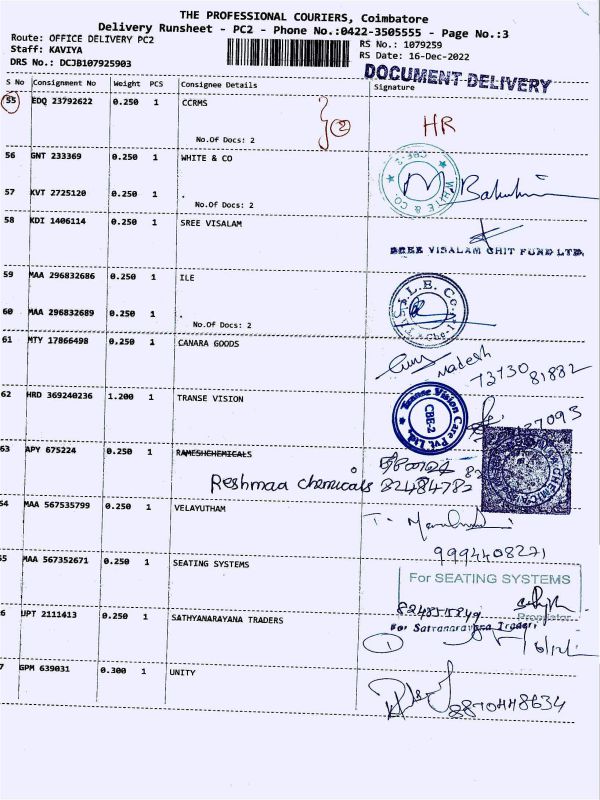 THE PROFESSIONAL COURIERS, Coimbatore
Delivery Runsheet - PC2 - Phone No.:0422-3505555 - Page No.:3
Route: OFFICE DELIVERY PC2
RS No.: 1079259
Staff: KAVIYA
RS Date: 16-Dec-2022
DRS No.: DCJB107925903
DOCUMENT DELIVERY
S No Consignment No Weight PCS Consignee Details Signature
55 EDQ 23792622 0.250 1 CCRMS
2 HR
No.Of Docs: 2
56 GNT 233369 0.250 1 WHITE & CO
WHITE & CO CBE-2
57 KVT 2725120 0.250 1 .
No.Of Docs: 2
58 KDI 1406114 0.250 1 SREE VISALAM
SREE VISALAM CHIT FUND LTD.
59 MAA 296832686 0.250 1 ILE
60 MAA 296832689 0.250 1 .
No.Of Docs: 2
61 MTY 17866498 0.250 1 CANARA GOODS
Madesh
73730 81882
62 HRD 369240236 1.200 1 TRANSE VISION
Transe Vision Care Pvt. Ltd. CBE-2
37093
63 APY 675224 0.250 1 RAMESHCHEMICALS
Reshmaa chemicals 82484782
54 MAA 567535799 0.250 1 VELAYUTHAM
9994408271
55 MAA 567352671 0.250 1 SEATING SYSTEMS
For SEATING SYSTEMS
Proprietor
6 UPT 2111413 0.250 1 SATHYANARAYANA TRADERS
For Satyanarayana Traders
1
7 GPM 639031 0.300 1 UNITY
8870448634